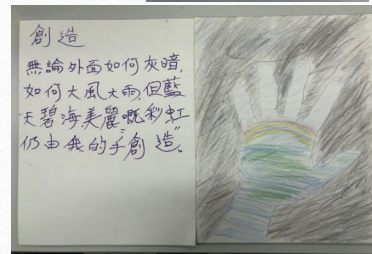 創造
無論外面如何灰暗,
如何大風大雨,但藍
天碧海美麗嘅彩虹
仍由我的手“創造”。